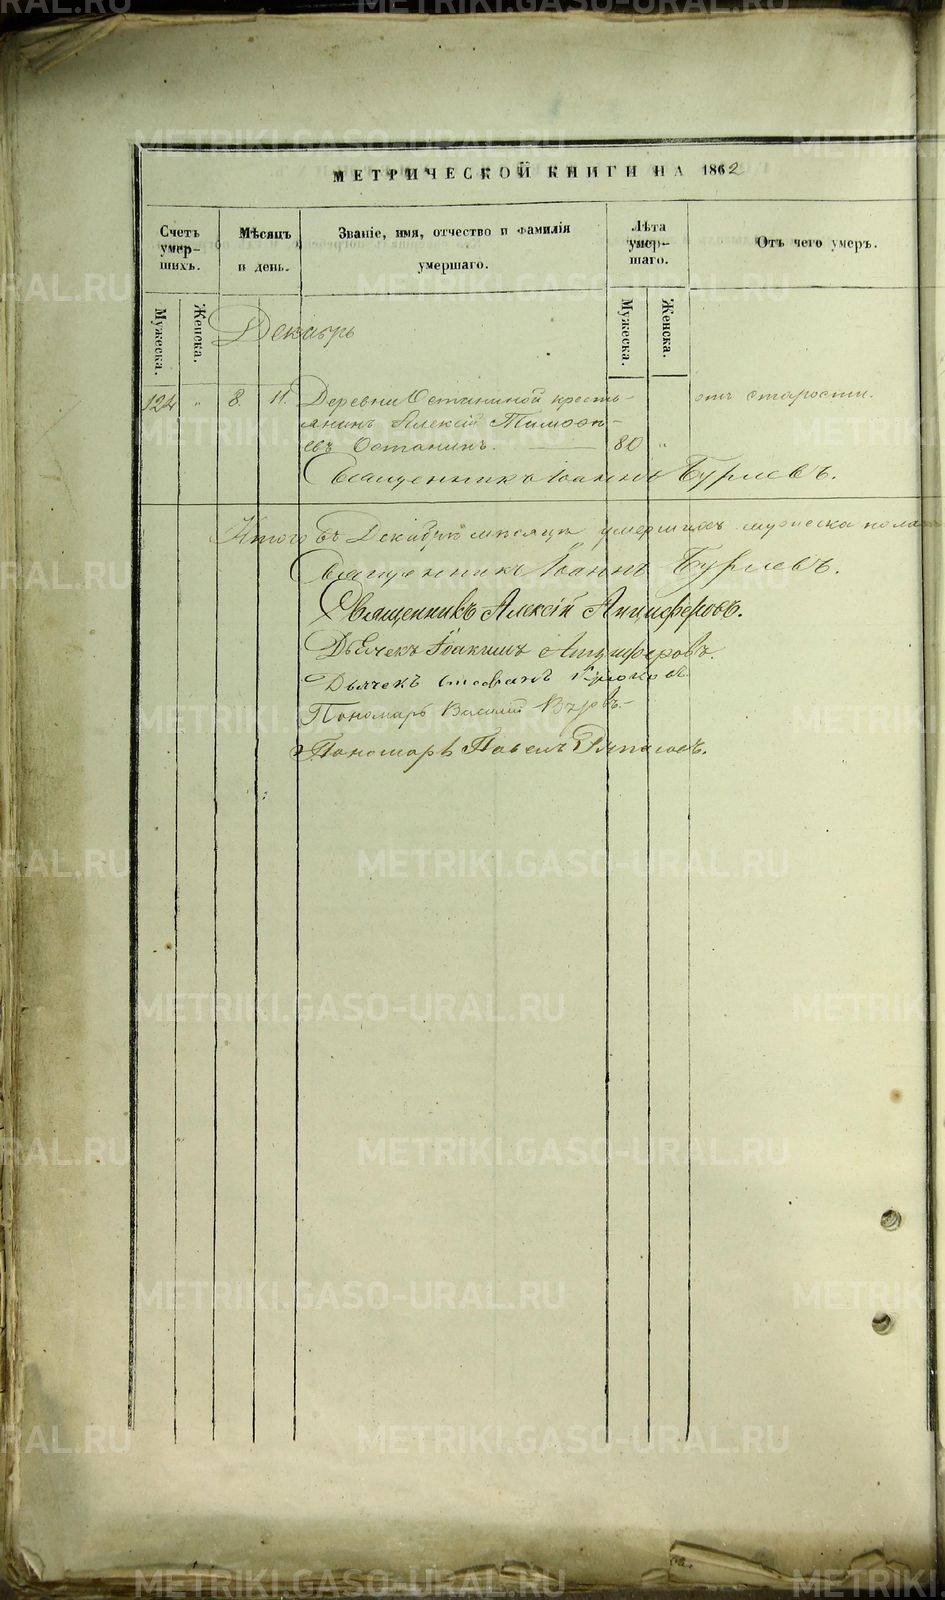 МЕТРИЧЕСКОЙ КНИГИ НА 1862
Счетъ умер-шихъ.
Мѣсяцъ и день.
Званіе, имя, отчество и фамилія умершаго.
Лѣта умер-шаго.
Отъ чего умеръ.
Мужеска.
Женска.
Мужеска.
Женска.
Декабрь
124 " 8. 11. Деревни Останиной кресть- отъ старости.
янинъ Алексій Тимофе-
евъ Останинъ. 80 "
Священникъ Іоаннъ Бурлевъ.
Итого въ Декабрѣ мѣсяцѣ умершихъ мужеска пола
Священникъ Іоаннъ Бурлевъ.
Священникъ Алексій Анциферовъ.
Дьячекъ Іоакимъ Анциферовъ.
Дьячекъ Стефанъ
Пономарь Василій
Пономарь Павелъ
METRIKI.GASO-URAL.RU